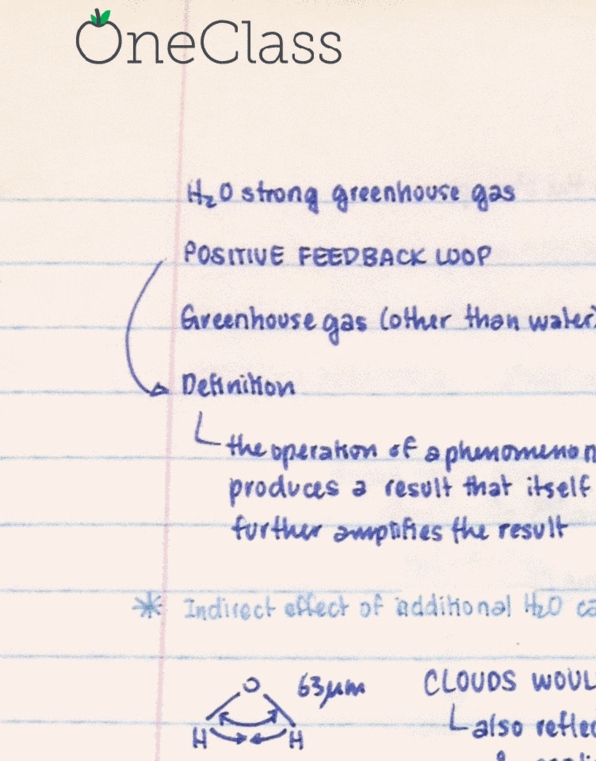 OneClass
H₂O strong greenhouse gas
POSITIVE FEEDBACK LOOP
Greenhouse gas (other than water)
Definition
the operation of a phenomenon
produces a result that itself
further amplifies the result
* Indirect effect of additional H₂O ca
O 63μm CLOUDS WOUL
also reflec
H H
&